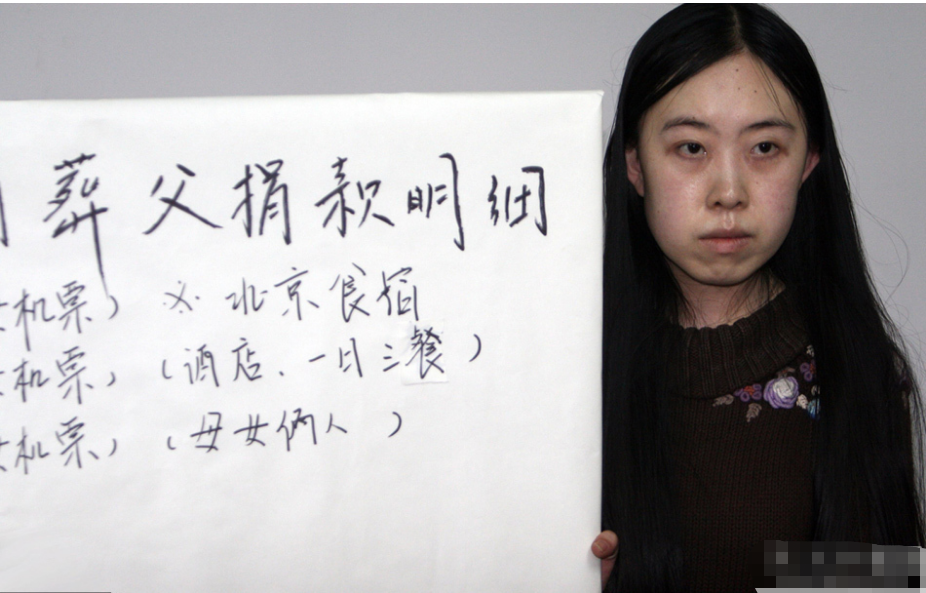 葬父捐款明细
机票) ※ 北京食宿
机票) (酒店、一日三餐)
机票) (母女俩人)